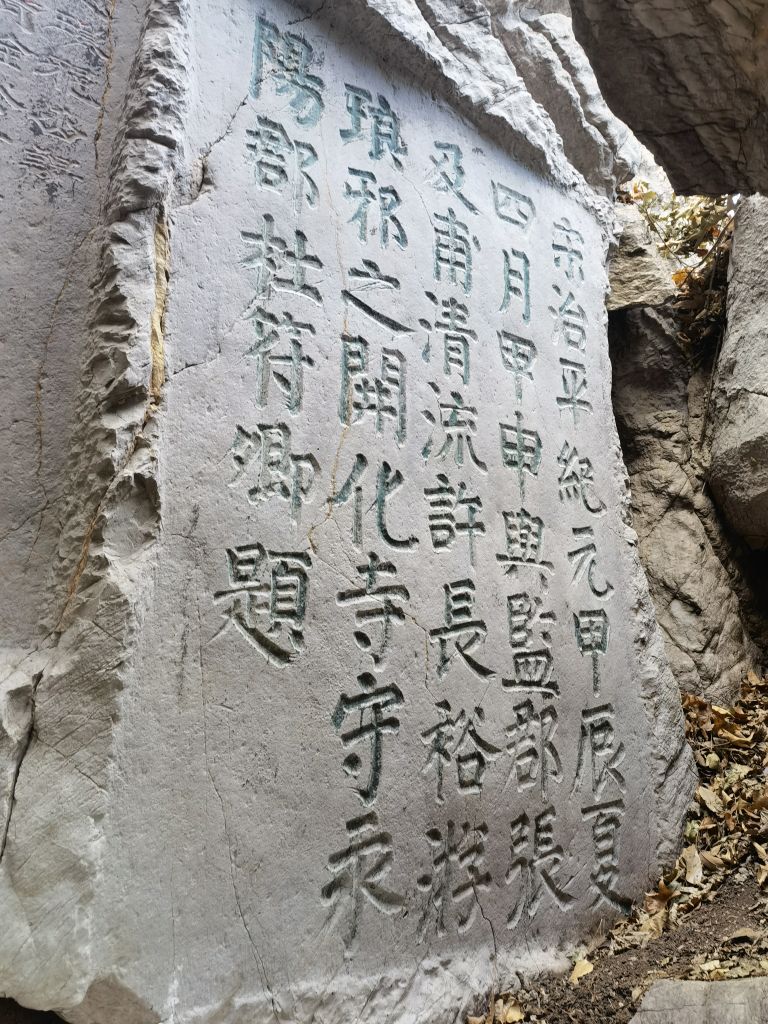 宋治平紀元甲辰夏
四月甲申與監郡張
及甫清流許長裕游
瑯邪之開化寺守永
陽郡杜符卿題